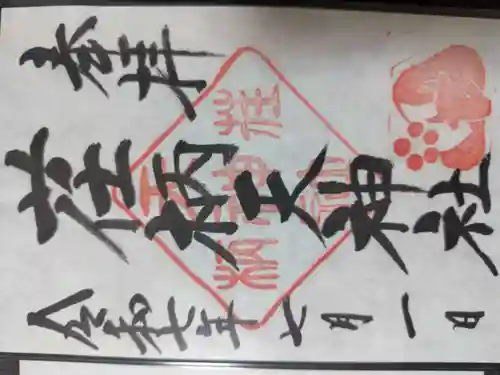 奉拝
荏柄天神社
令和七年七月一日